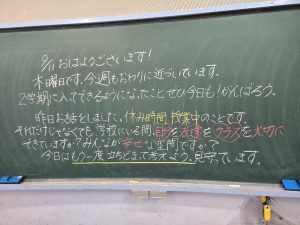 9/11 おはようございます!
木曜日です。今週もおわりに近づいています。
2学期に入ってできるようになったことぜひ今日も!がんばろう。
昨日お話をしました、休み時間、授業中のことです。
それだけじゃなくても学校にいる間、自分を友達をクラスを大切に
できていますか?みんなが幸せな空間ですか?
今日はもう一度立ちどまって考えよう。見守っています。